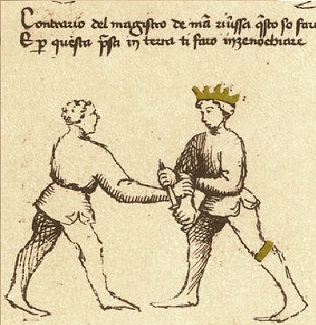 Contrario del magistro de mã riv̓ssa q̃sto so far
E p̱ questa p̃sa in terra ti faro inzenochiare